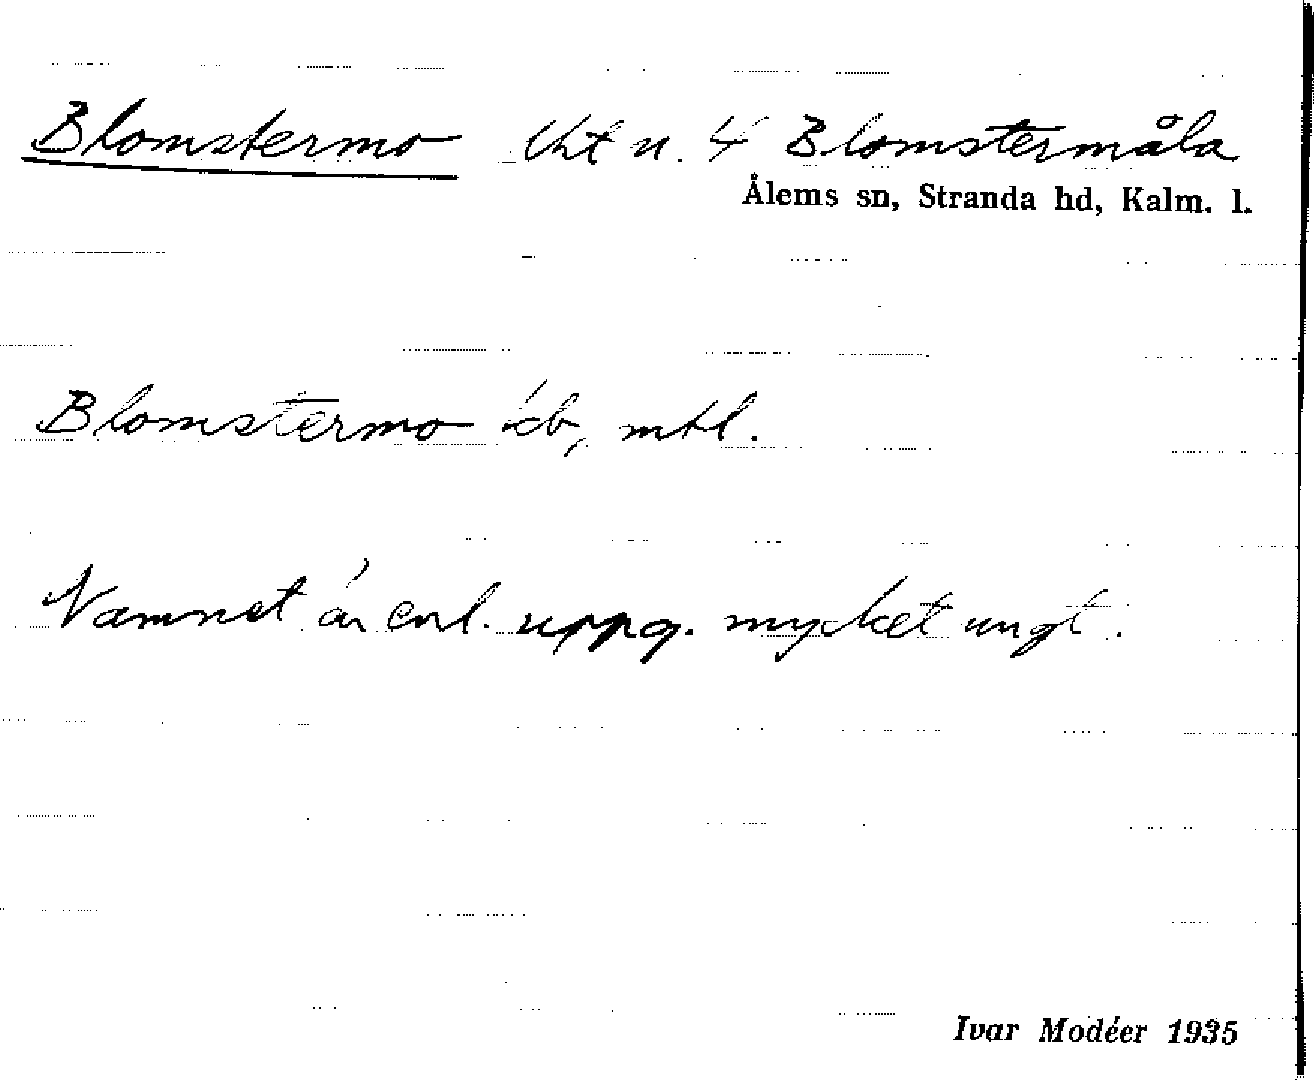 Blomstermo Lht u. 4 Blomstermåla
Ålems sn, Stranda hd, Kalm. l.
Blomstermo jdb, mtl.
Namnet är enl. uppg. mycket ungt.
Ivar Modéer 1935